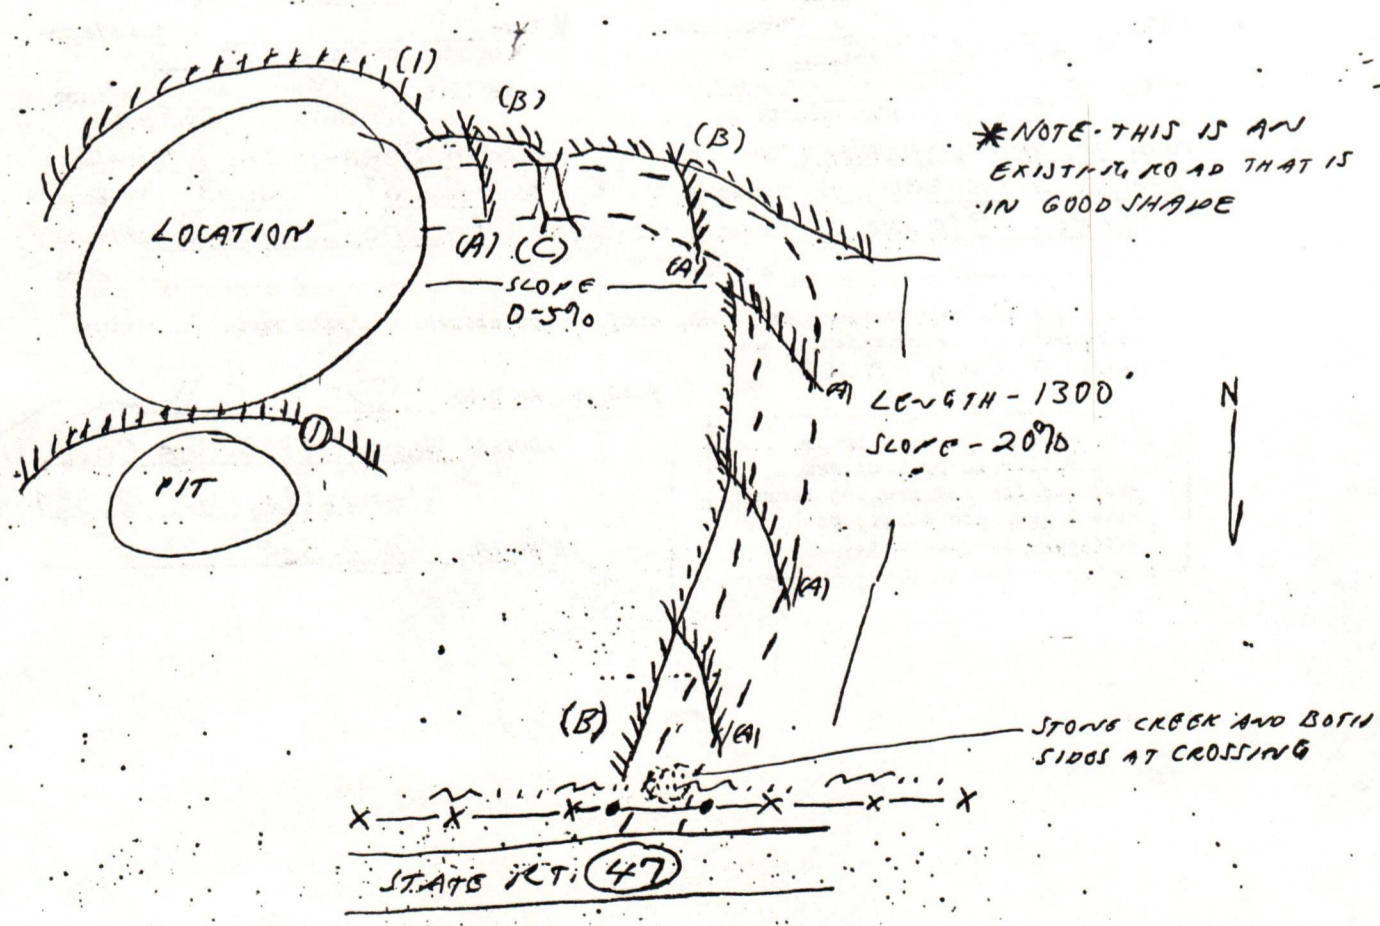 (1)
(B)
(B)
* NOTE - THIS IS AN
EXISTING ROAD THAT IS
IN GOOD SHAPE
LOCATION
(A) (C)
(A)
SLOPE
0-5%
(A)
LENGTH - 1300'
SLOPE - 20%
N
1
PIT
(A)
(B)
(A)
STONE CREEK AND BOTH
SIDES AT CROSSING
STATE RT. 47